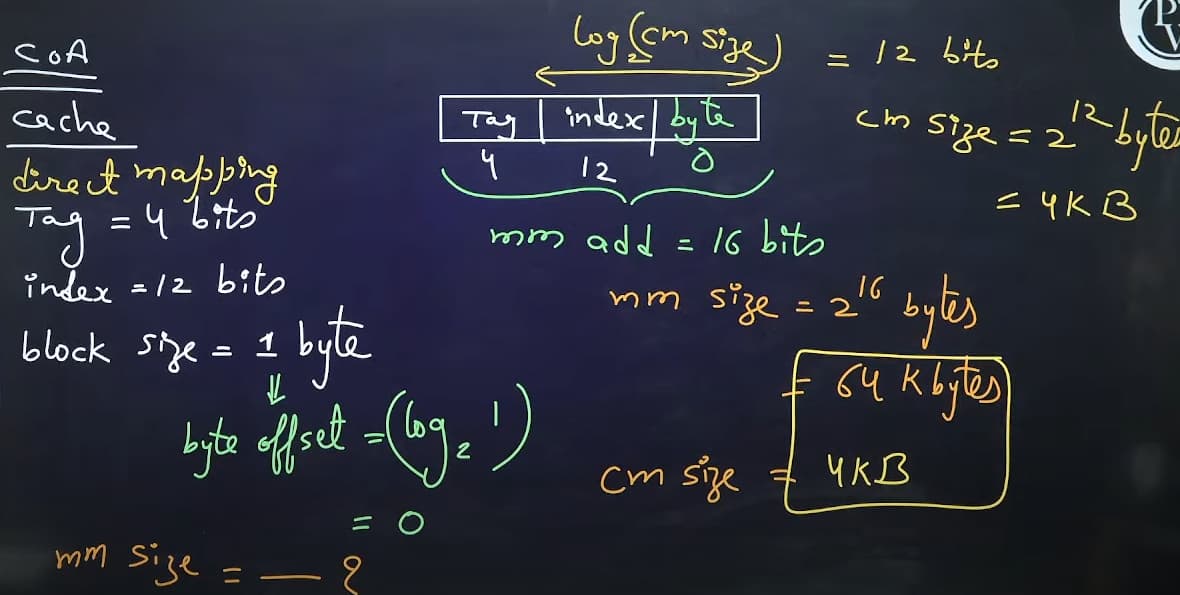 COA
cache
direct mapping
Tag = 4 bits
index = 12 bits
block size = 1 byte
⇓
byte offset = (log₂ 1)
= 0
mm size = — ?
log₂(cm size) = 12 bits
Tag | index | byte
4 12 0
mm add = 16 bits
mm size = 2¹⁶ bytes
= 64 K bytes
cm size = 4KB
cm size = 2¹² bytes
= 4KB
P
W